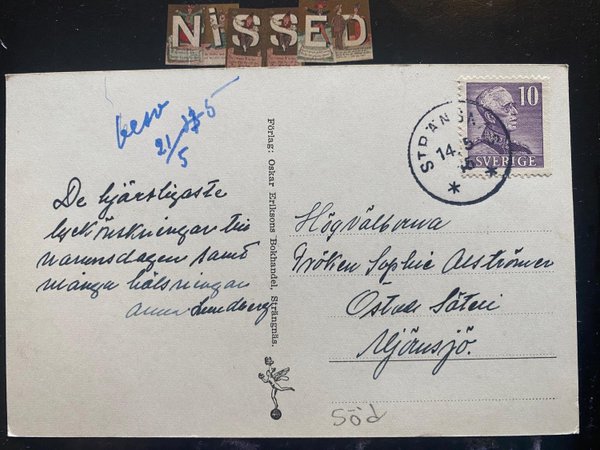 NiSSED
besv
21/5
De hjärtligaste
lyckönskningar till
namnsdagen samt
många hälsningar
Anna Lundberg
Förlag: Oskar Eriksons Bokhandel, Strängnäs.
10
SVERIGE
STRÄNGN
14.5
Högvälborna
Fröken Sophie Alströmer
Östad Säteri
Mjörnsjö.
SÖD